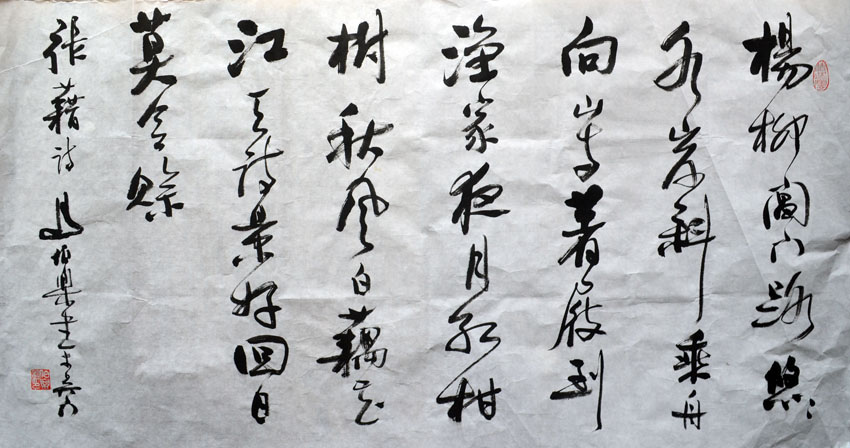 楊柳閶门路悠〻
水岸斜乘舟
向山寺著屐到
漁家夜月红柑
樹秋风白藕花
江天诗景好回日
莫令賒
張藉诗